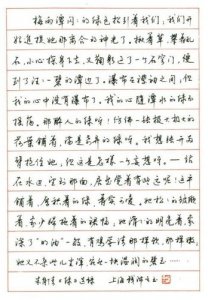 梅雨潭闪闪的绿色招引着我们；我们开
始追捉她那离合的神光了。揪着草，攀着乱
石，小心探身下去，又鞠躬过了一个石穹门，便
到了汪汪一碧的潭边了。瀑布在襟袖之间；但
我的心中已没有瀑布了。我的心随潭水的绿而
摇荡。那醉人的绿呀！仿佛一张极大极大的
荷叶铺着，满是奇异的绿呀。我想张开两
臂抱住她；但这是怎样一个妄想呀。——站
在水边，望到那面，居然觉着有些远呢！这平
铺着，厚积着的绿，着实可爱。她松松的皱缬
着，像少妇拖着的裙幅；她滑滑的明亮着，像
涂了“明油”一般，有鸡蛋清那样软，那样嫩；
她又不杂些儿尘滓，宛然一块温润的碧玉
朱自清《绿》选抄